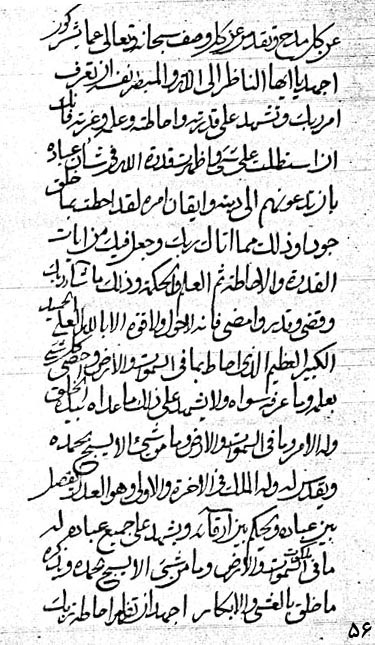 عن كل مدح وتقدس عن كل وصف سبحانه وتعالى عما يشركون
اجهد يا ايها الناظر الى الله والمتصرف از تعرف
امر ربك وتشهد على قدرته واحاطته وعلمه وعزته فانك
ان استطلت على شيء واظهرت قدرة الله في شان عباده
بان تدعونهم الى دينه وايقان امره لقد احطت بما خلق
جودا وذلك مما اتاك ربك وجعل فيك من ايات
القدرة والاحاطة ثم العلم والحكمة وذلك ما شاء ربك
وقضى وقدر وامضى فانه لا حول ولا قوة الا بالله العلي
الكبير العظيم الذي احاط بما في السموات والارض واحصى كل شيء
بعلمه وما عرفه سواه ولا يشهد على ذلك ما عداه بيده الخلق
وله الامر وما في السموات والارض وما من شيء الا يسبح بحمده
ويقدس له وله الملك في الاخرة والاولى وهو العدل يفصل
بين عباده ويحكم بين ارقائه ويشهد على جميع عباده له
ما في ملكوت السموات والارض وما من شيء الا يسبح بحمده ويذكره
ما خلق بالعشي والابكار اجهد ان تنظر احاطة ربك
۵۶